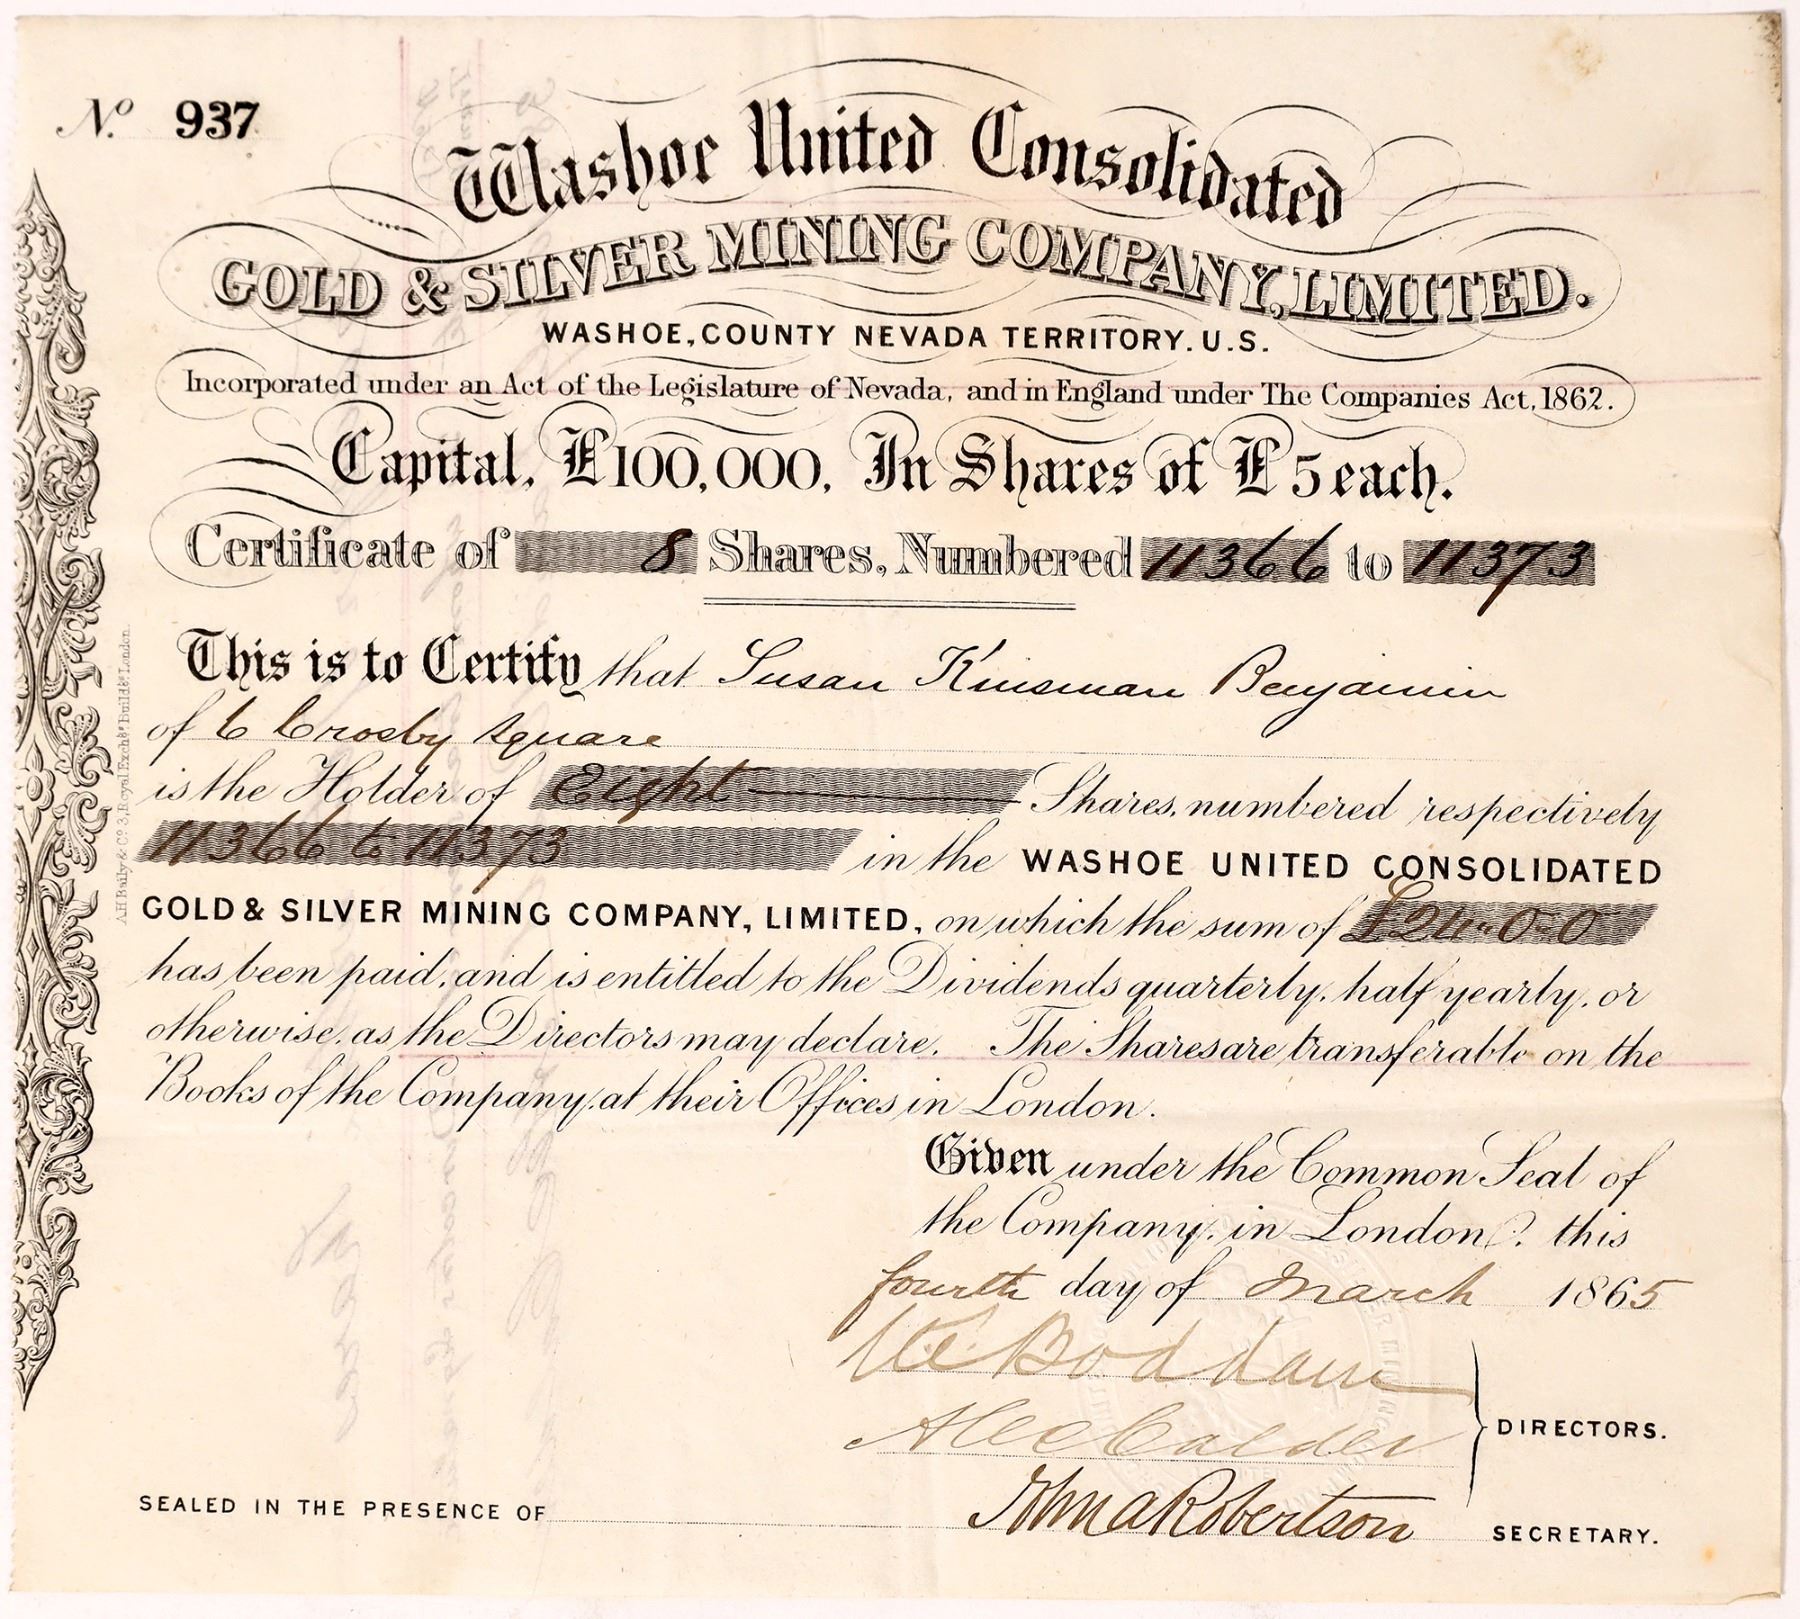 No. 937
Washoe United Consolidated
GOLD & SILVER MINING COMPANY, LIMITED.
WASHOE, COUNTY NEVADA TERRITORY. U.S.
Incorporated under an Act of the Legislature of Nevada, and in England under The Companies Act, 1862.
Capital, £100,000, In Shares of £5 each.
Certificate of 8 Shares, Numbered 11366 to 11373
This is to Certify that Susan Kinsman Benjamin
of 6 Crosby Square
is the Holder of Eight Shares, numbered respectively
11366 to 11373 in the WASHOE UNITED CONSOLIDATED
GOLD & SILVER MINING COMPANY, LIMITED, on which the sum of £24-0-0
has been paid, and is entitled to the Dividends quarterly, half yearly, or
otherwise, as the Directors may declare. The Shares are transferable on the
Books of the Company, at their Offices in London.
Given under the Common Seal of
the Company, in London, this
fourth day of March 1865
Boddam
Alec Calder
DIRECTORS.
SEALED IN THE PRESENCE OF
John A Robertson
SECRETARY.
A.H. Baily & Co. 3, Royal Exchge. Buildgs. London.